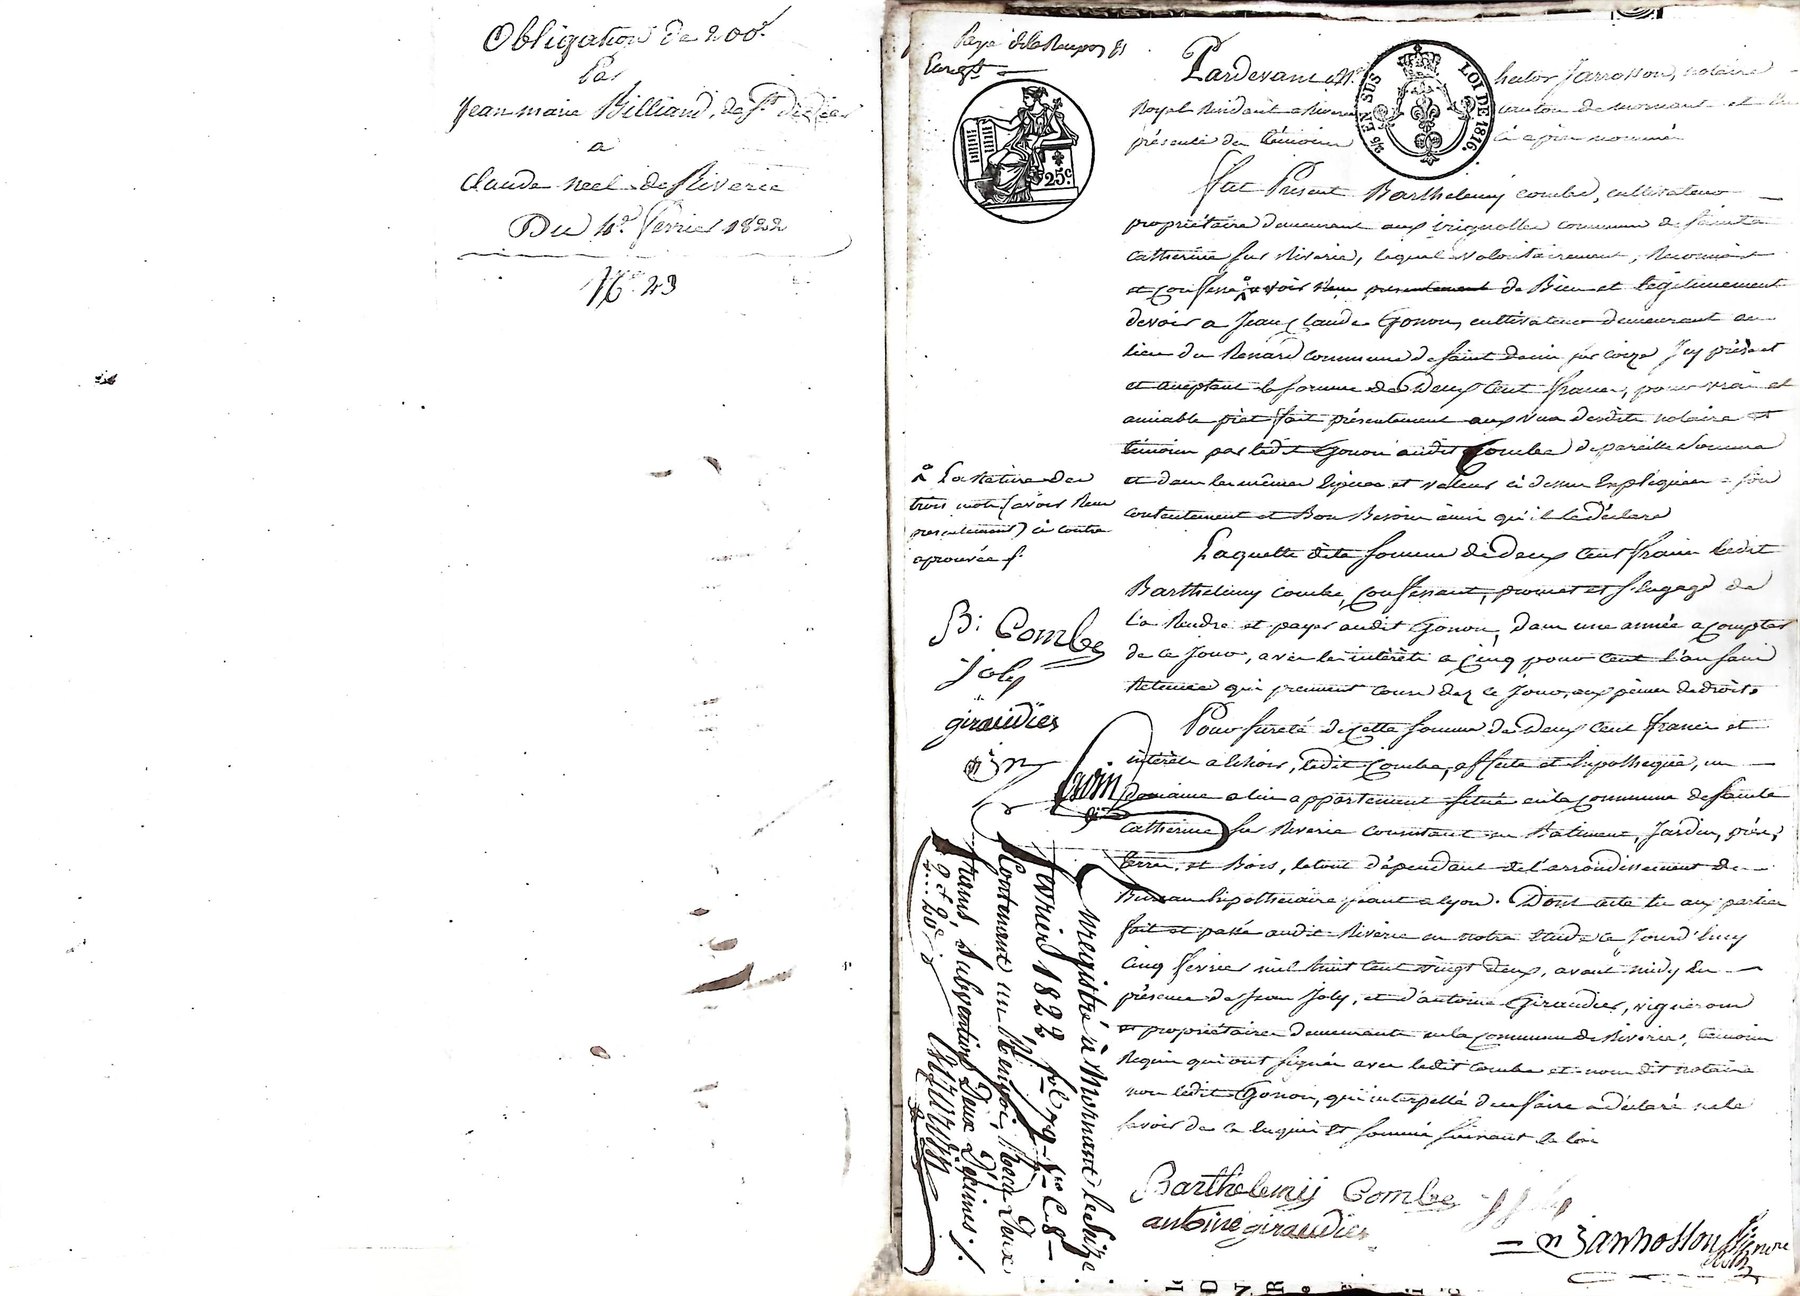 Obligation de 200f
Par
Jean marie Billiard, de St didier
a
Claude neel de Riverie
Du 4e fevrier 1822
No. 23
Enregt
25c
25 EN SUS
LOI DE 1816
Pardevant Me hector Jarrosson, notaire
Royal Residant a Riverie canton de mornant et en
présence des témoins ci apres nommés
fut Présent Barthelemy combe, cultivateur
propriétaire demeurant aux commune de sainte
Catherine sur Riverie, lequel volontairement, Reconnait
et confesse avoir Reçu presentement de Bien et légitimement
devoir a Jean Claude Gonon, cultivateur demeurant au
lieu du Renard commune de saint denis sur coize Icy présent
et aceptant la somme de Deux Cent francs, pour vrai et
amiable prêt fait présentement aux vus desdits notaire et
témoins par ledit Gonon audit Combe de pareille Somme
et dans les mêmes Espèces et valeurs ci dessus Expliquées a son
contentement et Bon Besoin ainsi qu'il le déclare
Laquelle dite somme de Deux Cent francs ledit
Barthelemy combe, Confessant, promet et s'engage de
la Rendre et payer audit Gonon, dans une année a compter
de ce Jour, avec les intérêts a Cinq pour Cent l'an sans
Retenue qui prennent cours dez ce Jour, aux peines de droit.
Pour sureté de cette somme de Deux Cent francs et
intérêts a Echoir, ledit Combe, affecte et hipothéque, un
Domaine a lui appartenant situé en la Commune de Sainte
Catherine sur Riverie Consistant en Batiment, Jardin, prés,
terres, et Bois, le tout dépendant de l'arrondissement du
Bureau hipothécaire séant a lyon. Dont acte lu aux parties
fait et passé audit Riverie en notre Etude ce Jourd'huy
Cinq fevrier mil huit Cent vingt deux, avant midy En
présence de Jean Joly, et d'antoine Giraudier, vignerons
et propriétaires demeurants en la Commune de Riverie, témoins
Requis qui ont signés avec ledit Combe et nous dit notaire
non ledit Gonon, qui interpellé de ce faire a déclaré ne le
savoir de ce Enquis Et sommé suivant la loi
La Rature des
trois mots (avoir Reçu
presentement) ci contre
aprouvée
B: Combe
joly
giraudier
Enregistré à Mornant le Seize
fevrier 1822 fol 79 Vo C. 8
Contenant un Renvoi, Reçu Deux
francs, Subvention Deux Décimes.
Barthelemy Combe
antoine giraudier
Jarrosson